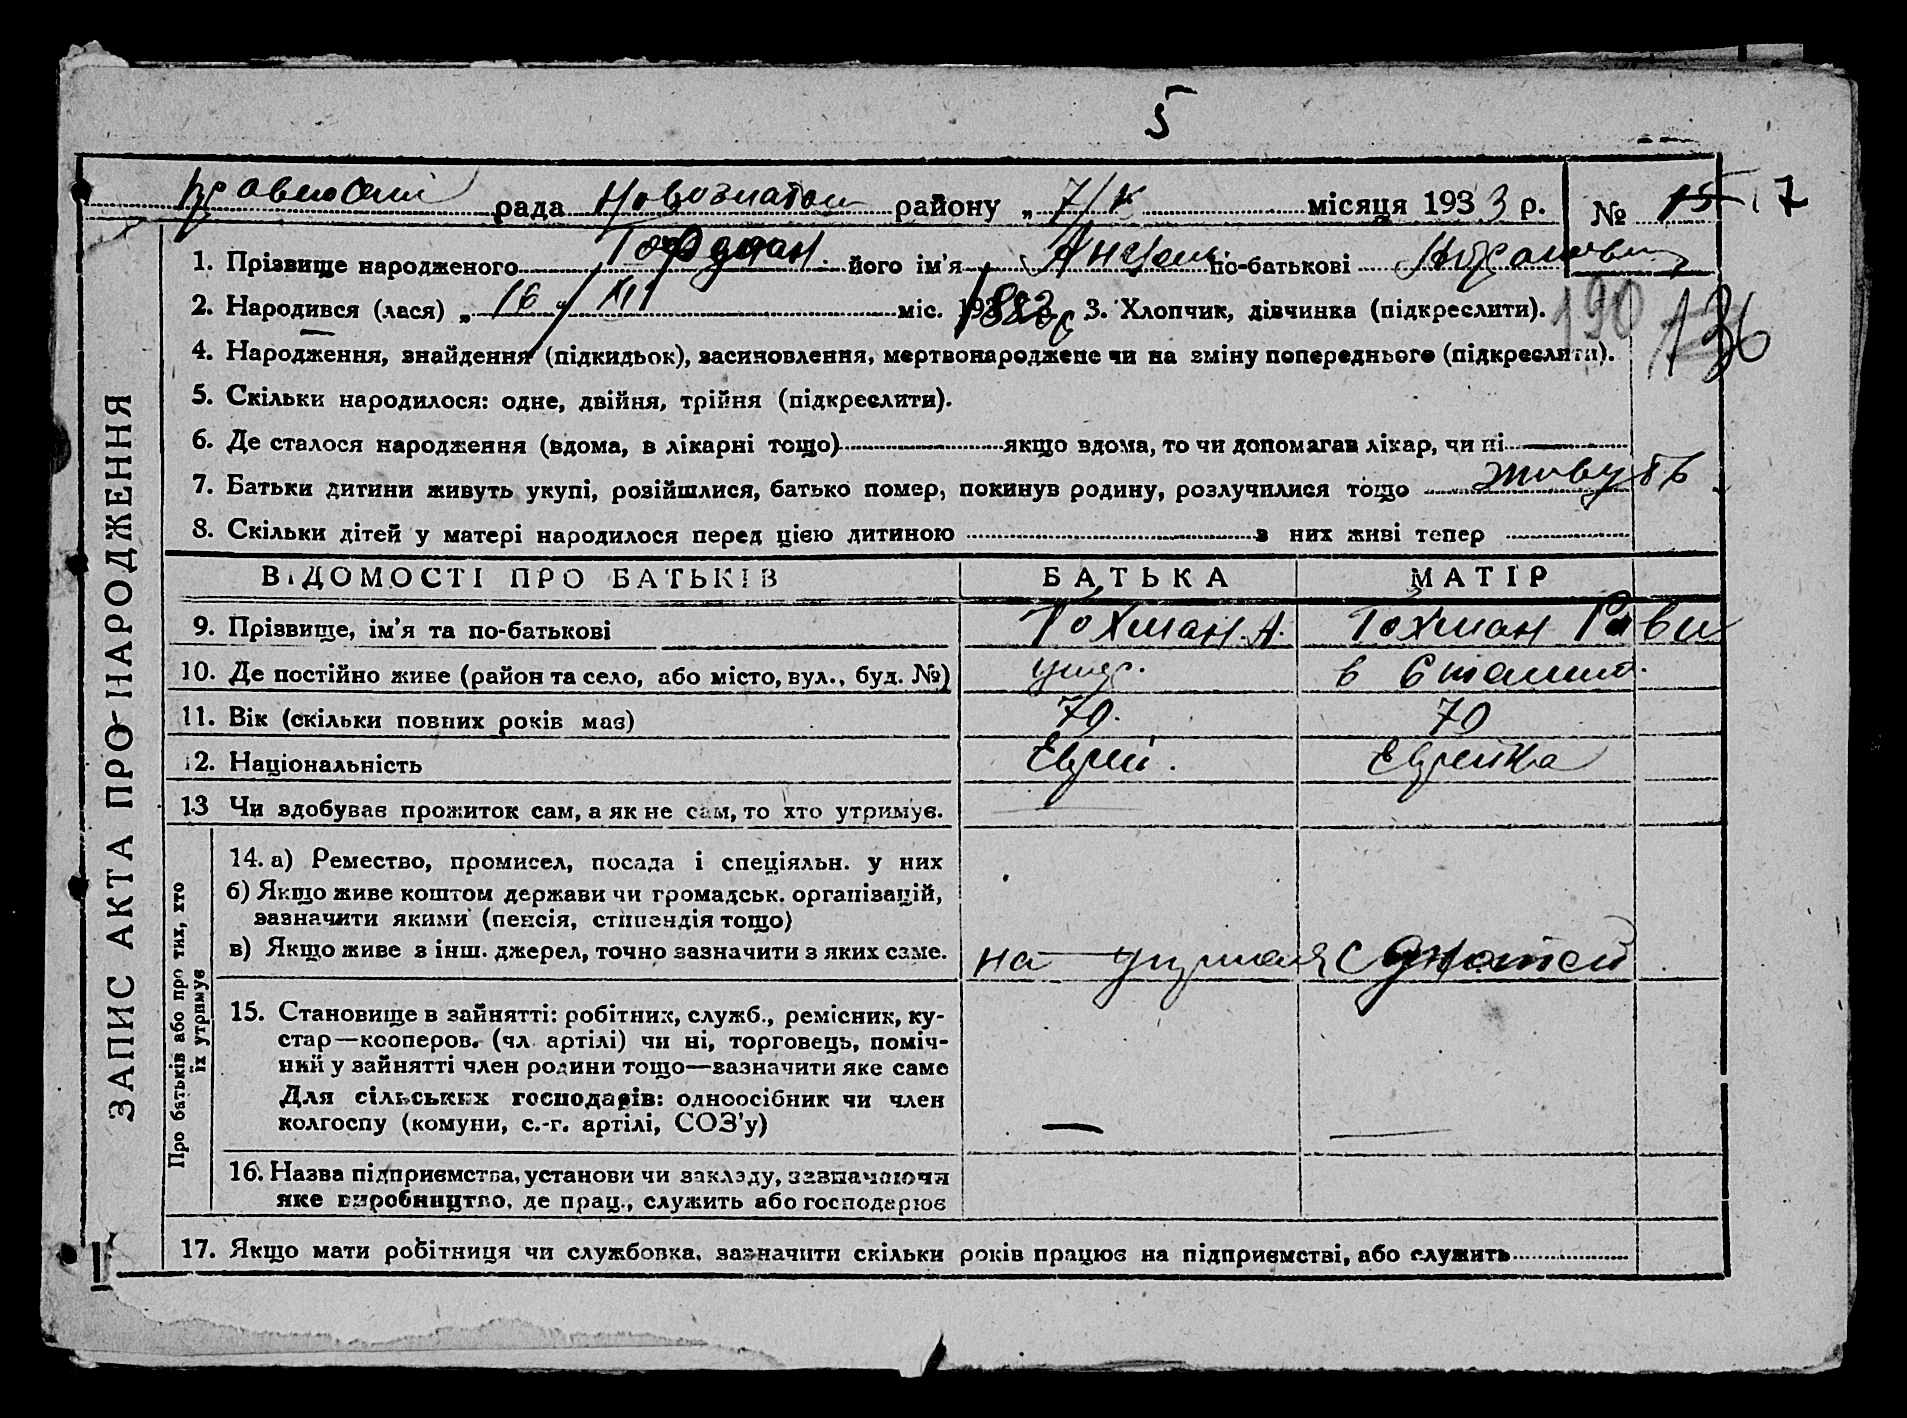 5
рада Новозлатоп району „ 7/V місяця 1933 р. № 15 17
1. Прізвище народженого його ім'я по-батькові
2. Народився (лася) „ 16 “ XII міс. 3. Хлопчик, дівчинка (підкреслити). 190 136
4. Народження, знайдення (підкидьок), засиновлення, мертвонароджене чи на зміну попереднього (підкреслити).
5. Скільки народилося: одне, двійня, трійня (підкреслити).
6. Де сталося народження (вдома, в лікарні тощо) якщо вдома, то чи допомагав лікар, чи ні
7. Батьки дитини живуть укупі, розійшлися, батько помер, покинув родину, розлучилися тощо живуть
8. Скільки дітей у матері народилося перед цією дитиною з них живі тепер
ЗАПИС АКТА ПРО НАРОДЖЕННЯ
ВІДОМОСТІ ПРО БАТЬКІВ БАТЬКА МАТІР
9. Прізвище, ім'я та по-батькові Гохман А. Гохман
10. Де постійно живе (район та село, або місто, вул., буд. №) в
11. Вік (скільки повних років має) 70. 70
12. Національність Еврей. Еврейка
13 Чи здобуває прожиток сам, а як не сам, то хто утримує.
Про батьків або про тих, хто
їх утримує
14. а) Ремество, промисел, посада і спеціяльн. у них
б) Якщо живе коштом держави чи громадськ. організацій,
зазначити якими (пенсія, стипендія тощо)
в) Якщо живе з інш. джерел, точно зазначити з яких саме. на
15. Становище в зайнятті: робітник, служб., ремісник, ку-
стар—кооперов. (чл. артілі) чи ні, торговець, поміч-
ний у зайнятті член родини тощо—зазначити яке саме
Для сільських господарів: одноосібник чи член
колгоспу (комуни, с.-г. артілі, СОЗ'у)
16. Назва підприємства, установи чи закладу, зазначаючи
яке виробництво, де прац., служить або господарює
17. Якщо мати робітниця чи службовка, зазначити скільки років працює на підприємстві, або служить